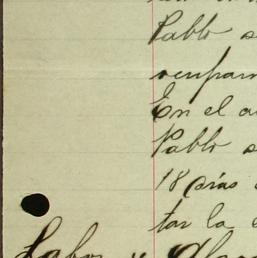 Pablo s
ocupar
En el a
Pablo s
18 días
tar la
Labor y